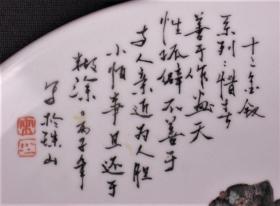 十二金钗
系列之惜春
善于作画天
性孤僻不善于
与人亲近为人胆
小怕事且过于
糊涂 丙子年
写於珠山